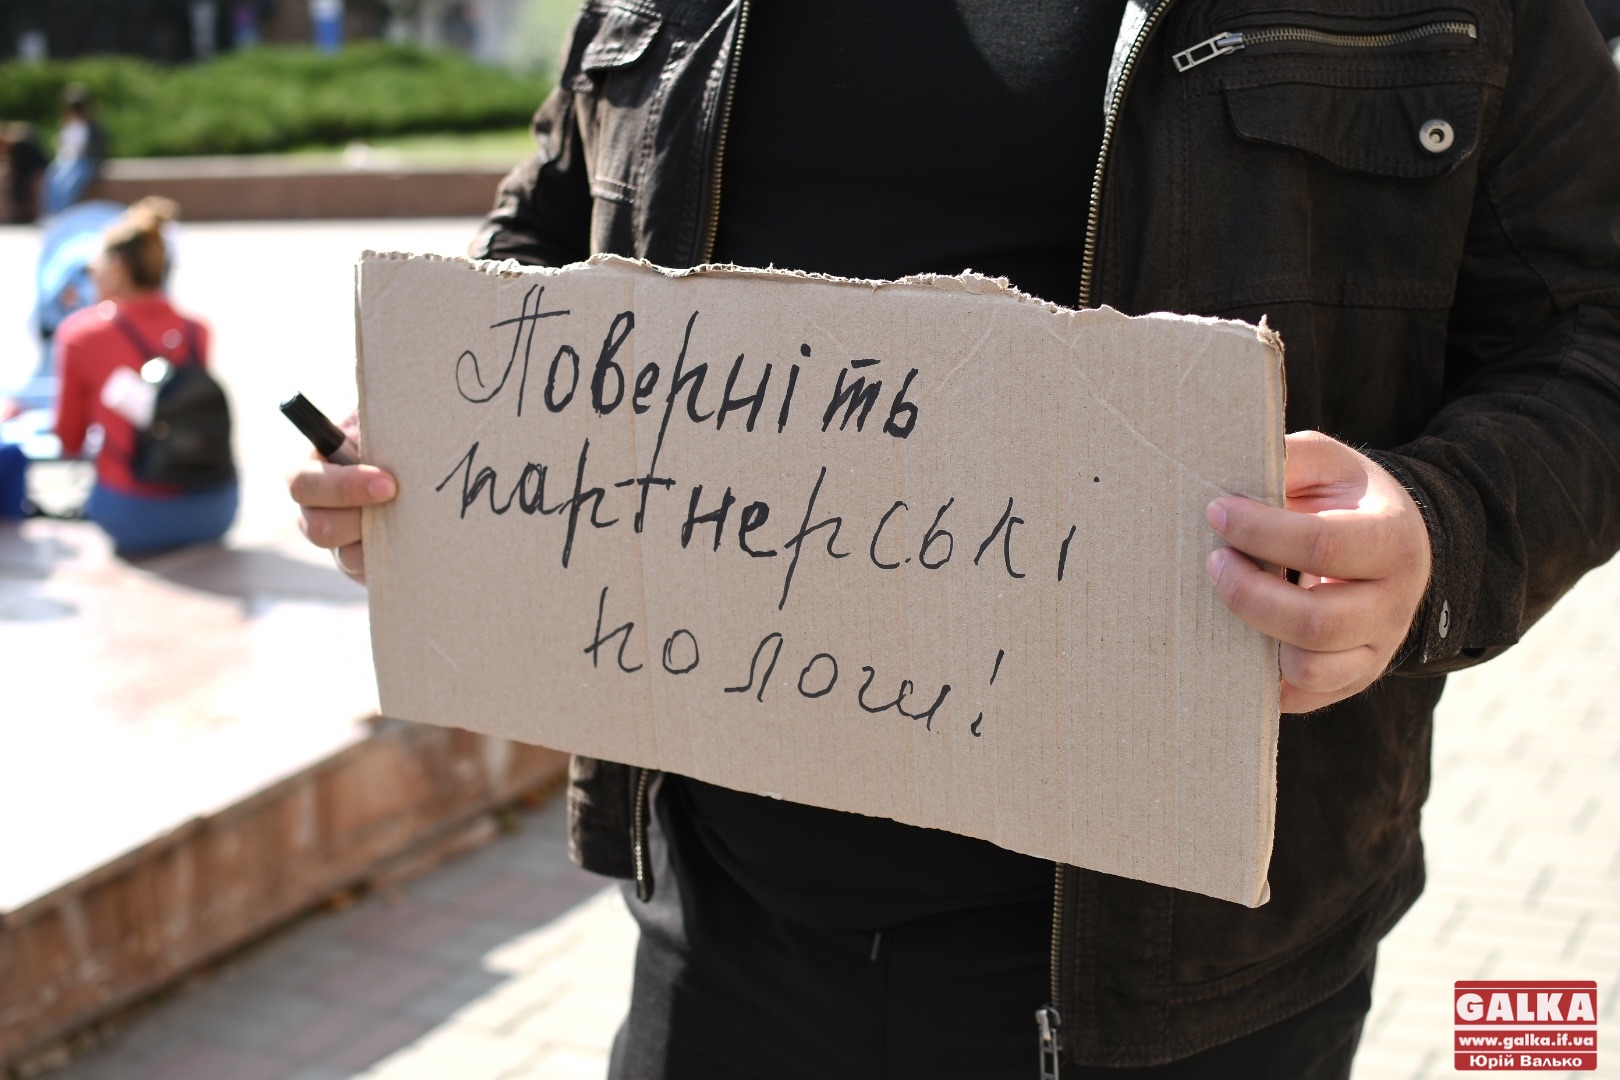 Поверніть
партнерські
пологи!
GALKA
www.galka.if.ua
Юрій Валько